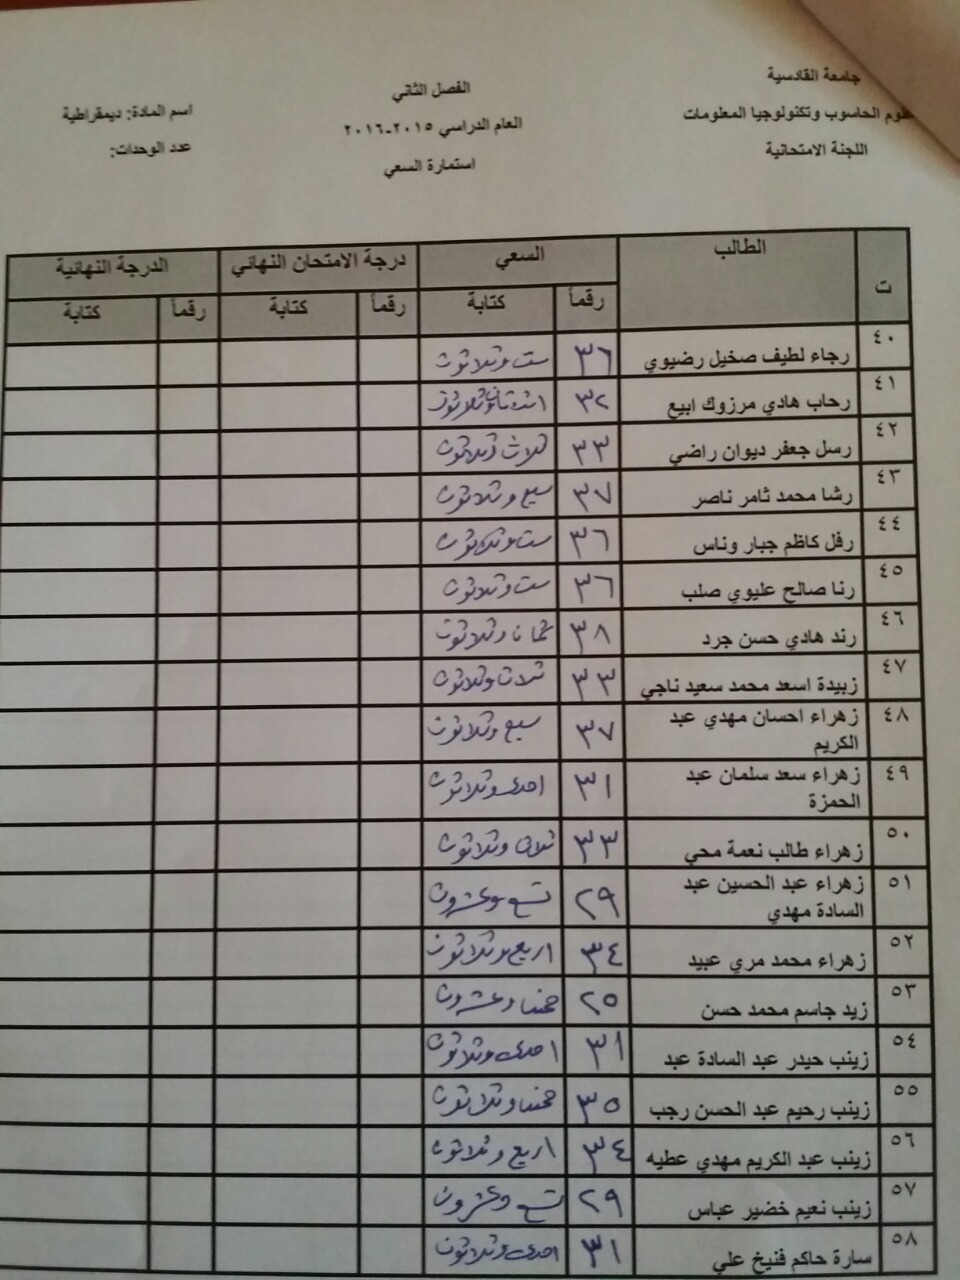 جامعة القادسية
علوم الحاسوب وتكنولوجيا المعلومات
اللجنة الامتحانية
الفصل الثاني
العام الدراسي ٢٠١٥-٢٠١٦
استمارة السعي
اسم المادة: ديمقراطية
عدد الوحدات:
ت الطالب السعي درجة الامتحان النهائي الدرجة النهائية
رقماً كتابة رقماً كتابة رقماً كتابة
٤٠ رجاء لطيف صخيل رضيوي ٣٦ ست وثلاثون
٤١ رحاب هادي مرزوك ابيع ٣٢ اثنتان وثلاثون
٤٢ رسل جعفر ديوان راضي ٣٣ ثلاث وثلاثون
٤٣ رشا محمد ثامر ناصر ٣٧ سبع وثلاثون
٤٤ رفل كاظم جبار وناس ٣٦ ست وثلاثون
٤٥ رنا صالح عليوي صلب ٣٦ ست وثلاثون
٤٦ رند هادي حسن جرد ٣٨ ثمان وثلاثون
٤٧ زبيدة اسعد محمد سعيد ناجي ٣٣ ثلاث وثلاثون
٤٨ زهراء احسان مهدي عبد ٣٧ سبع وثلاثون
الكريم
٤٩ زهراء سعد سلمان عبد ٣١ احدى وثلاثون
الحمزة
٥٠ زهراء طالب نعمة محي ٣٣ ثلاث وثلاثون
٥١ زهراء عبد الحسين عبد ٢٩ تسع وعشرون
السادة مهدي
٥٢ زهراء محمد مري عبيد ٣٤ اربع وثلاثون
٥٣ زيد جاسم محمد حسن ٢٥ خمس وعشرون
٥٤ زينب حيدر عبد السادة عبد ٣١ احدى وثلاثون
٥٥ زينب رحيم عبد الحسن رجب ٣٥ خمس وثلاثون
٥٦ زينب عبد الكريم مهدي عطيه ٣٤ اربع وثلاثون
٥٧ زينب نعيم خضير عباس ٢٩ تسع وعشرون
٥٨ سارة حاكم فنيخ علي ٣١ احدى وثلاثون